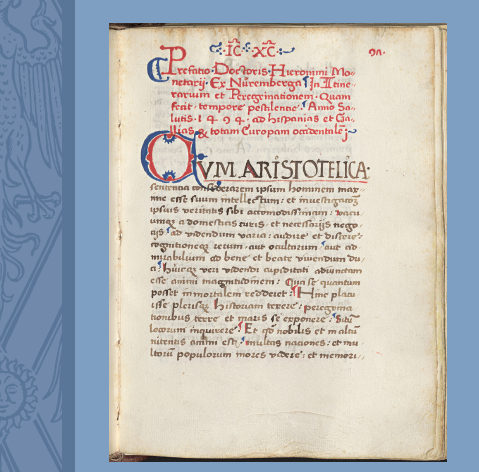 ·IC̄·XC̄·
9a.
Prefatio·Doctoris·Hieronimi Mo-
netarij·Ex Nüremberga In Itine-
rarum et Peregrinationem·Quam
fecit·tempore pestilencie·Anno Sa-
lutis·1494·ad hispanias et Ga-
llias & totam Europam occidentalē
QVVM·ARISTOTELICA·
sententia considerarem ipsum hominem max-
ime esse suum intellectum: et investigatoꝝ
ipsius veritatis sibi acomodissimam: vacu-
umqꝫ a domesticis curis, et necessarijs nego-
cijs ad videndum varia: audire et discere
cognitionemqꝫ rerum, aut ocultarum aut ad-
mirabilium ad bene et beate vivendum du-
ci: huicqꝫ veri videndi cupiditati adiunctam
esse animi magnitudinem: Qua se quantum
posset immortalem redderet: Hinc placu-
isse plerisqꝫ historiam texere: peregrina-
tionibus terre et maris se exponere: Sitū
locorum inquirere: Et qđ nobilis et maltū
nitentis animi est: multas naciones: et mu-
ltorū populorum mores videre: et memori-